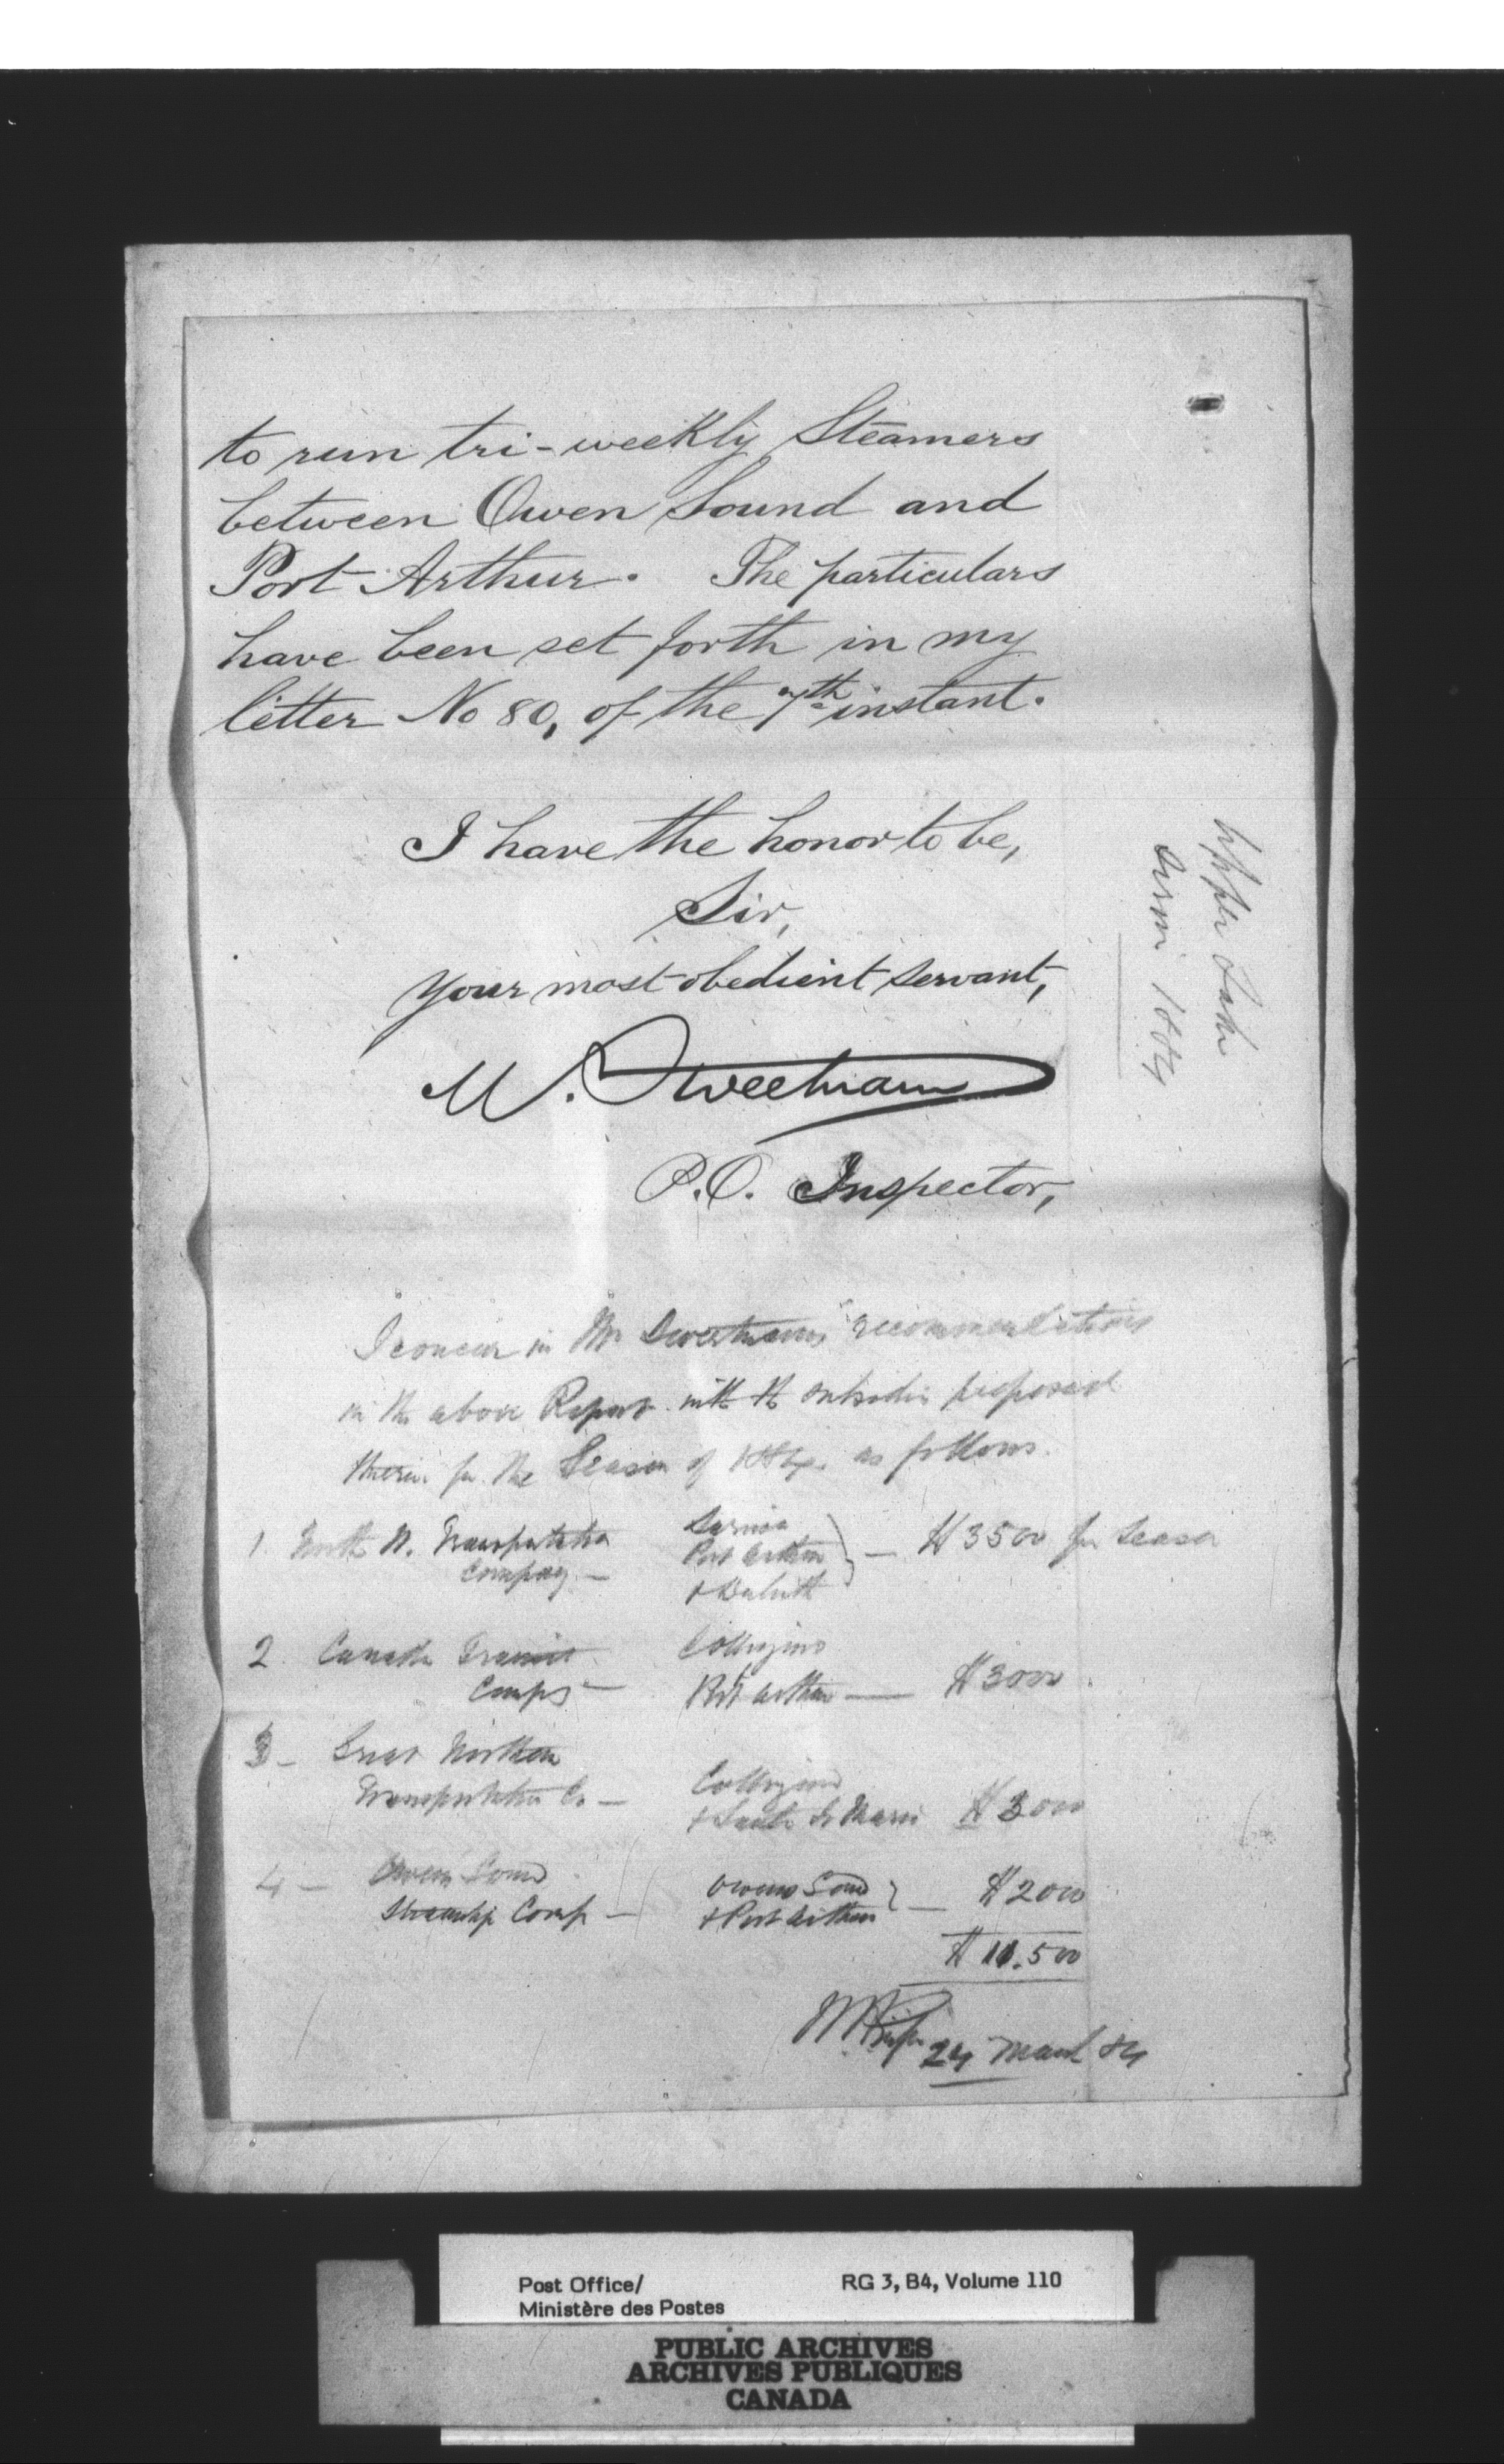 to run tri-weekly Steamers
between Owen Sound and
Port Arthur. The particulars
have been set forth in my
letter No 80, of the 7th instant.
I have the honor to be,
Sir,
Your most obedient servant,
M. Sweetnam
P.O. Inspector,
Upper Lake
1884
I concur in Mr Sweetnams recommendations
in the above Report with the subsidies proposed
therein for the Season of 1884. as follows.
1 North W. Transportation Sarnia
Company — Port Arthur } — $3500 for Season
& Duluth
2. Canada Transit Collingwood
Compy — Port Arthur — $3000
3 — Great Northern
Transportation Co — Collingwood
& Sault St Marie $3000
4 — Owen Sound Owen Sound } — $2000
Steamship Comp — & Port Arthur
$11.500
24 March 84
Post Office/ RG 3, B4, Volume 110
Ministère des Postes
PUBLIC ARCHIVES
ARCHIVES PUBLIQUES
CANADA